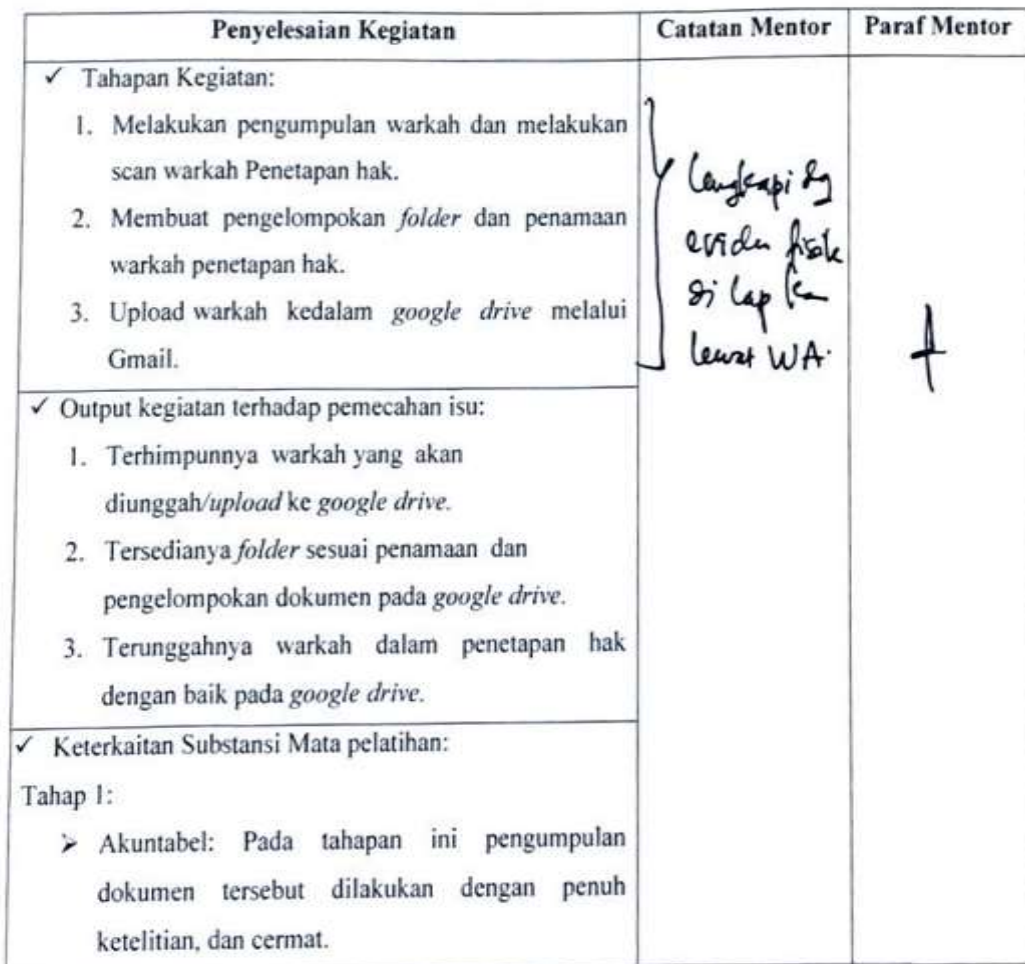 Penyelesaian Kegiatan
Catatan Mentor
Paraf Mentor
✓ Tahapan Kegiatan:
1. Melakukan pengumpulan warkah dan melakukan
scan warkah Penetapan hak.
2. Membuat pengelompokan folder dan penamaan
warkah penetapan hak.
3. Upload warkah kedalam google drive melalui
Gmail.
lengkapi dg
fisik
di lap
lewat WA.
✓ Output kegiatan terhadap pemecahan isu:
1. Terhimpunnya warkah yang akan
diunggah/upload ke google drive.
2. Tersedianya folder sesuai penamaan dan
pengelompokan dokumen pada google drive.
3. Terunggahnya warkah dalam penetapan hak
dengan baik pada google drive.
✓ Keterkaitan Substansi Mata pelatihan:
Tahap 1:
➢ Akuntabel: Pada tahapan ini pengumpulan
dokumen tersebut dilakukan dengan penuh
ketelitian, dan cermat.